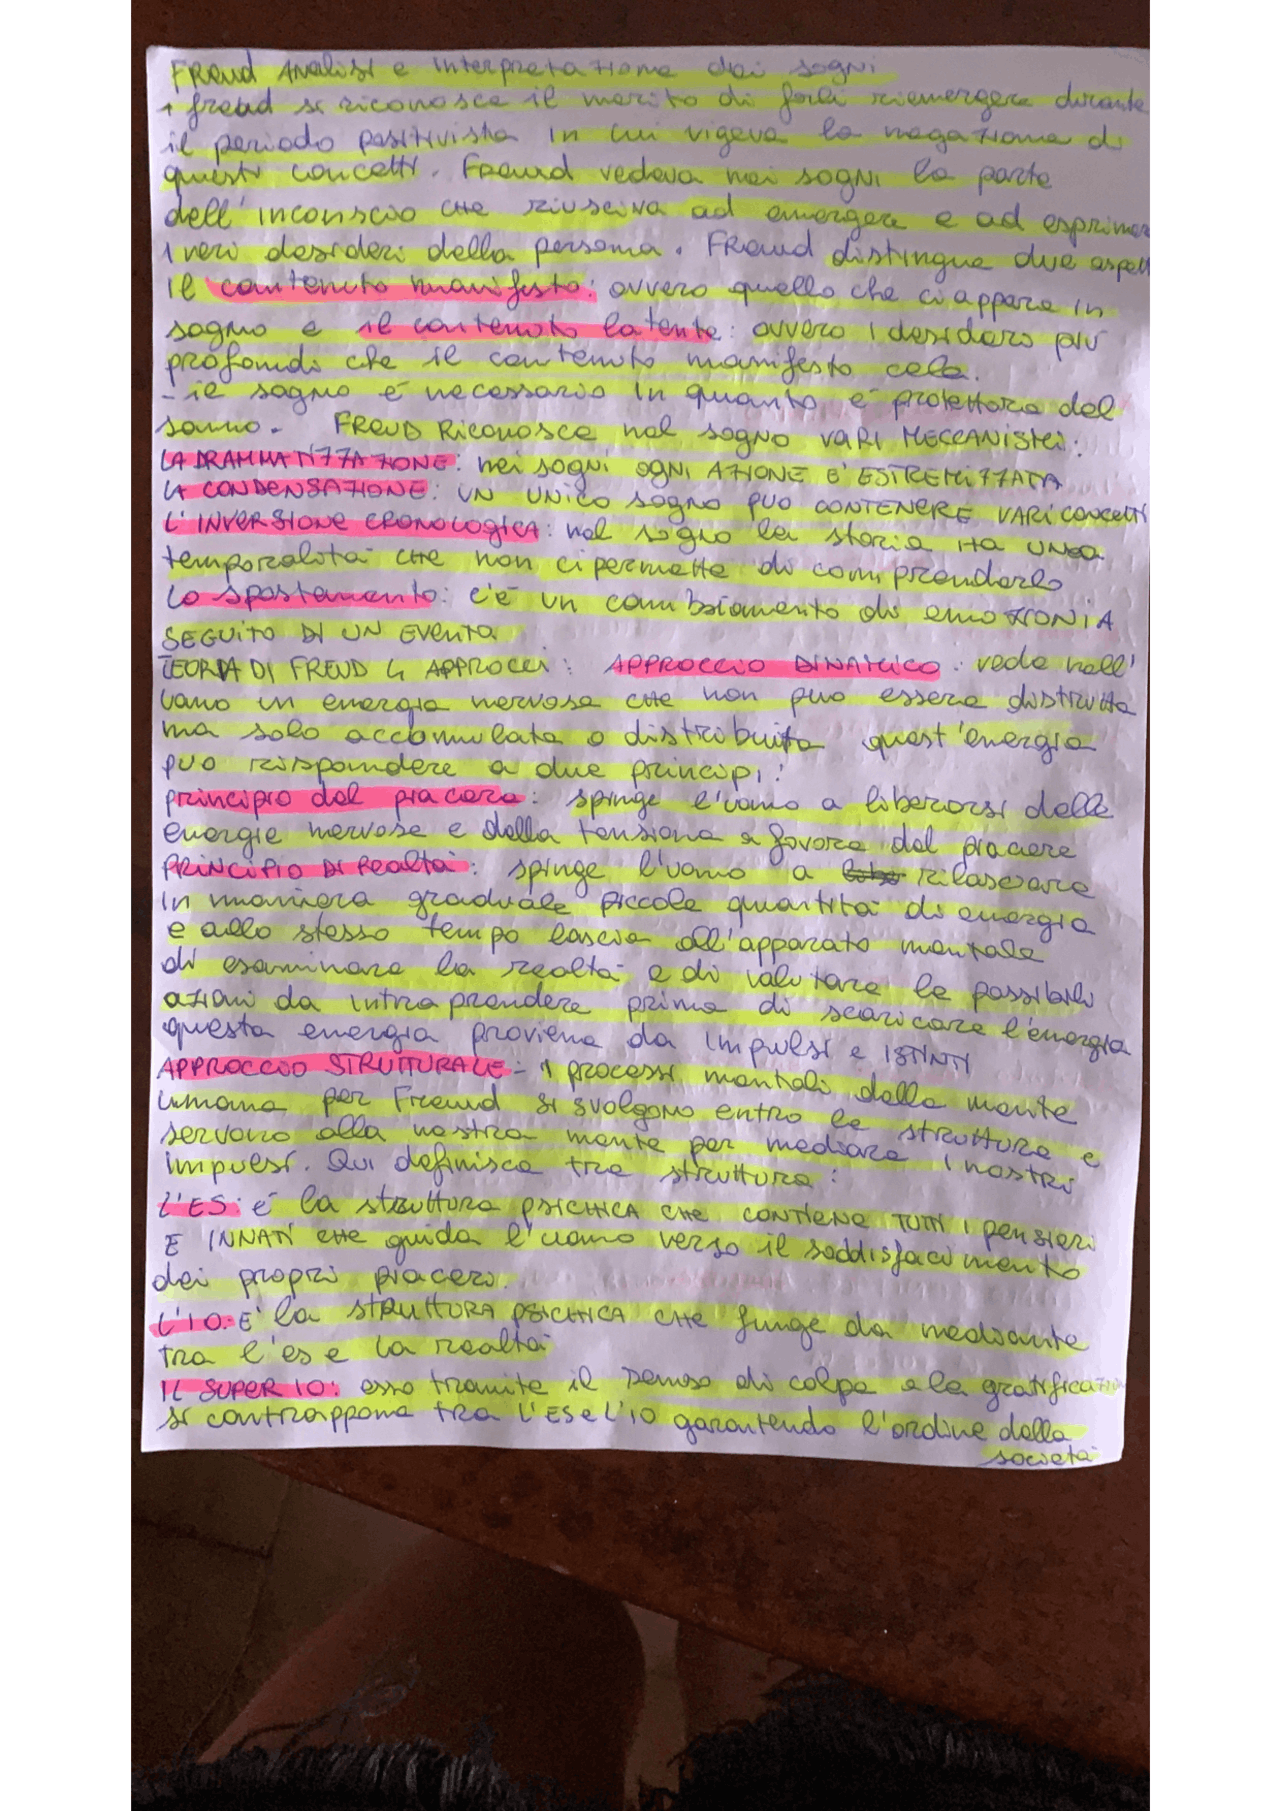 FReud Analisi e interpretazione dei sogni
A freud si riconosce il merito di farli riemergere durante
il periodo positivista in cui vigeva la negazione di
questi concetti. Freud vedeva nei sogni la parte
dell'inconscio che riusciva ad emergere e ad esprimer
i veri desideri della persona. Freud distingue due aspett
il contenuto manifesto: ovvero quello che ci appare in
sogno e il contenuto latente: ovvero i desidero più
profondi che il contenuto manifesto cela.
- il sogno è necessario in quanto è protettore del
sonno. FREUD Riconosce nel sogno VARI MECCANISMI:
LA DRAMMATIZZAZIONE: nei sogni OGNI AZIONE E' ESTREMIZZATA
LA CONDENSAZIONE: UN UNICO sogno PUO CONTENERE VARI concetti
L'INVERSIONE CRONOLOGICA: nel sogno la storia HA UNA
temporalità che non ci permette di comprenderlo
Lo spostamento: c'è un cambiamento di emozIONI A
SEGUITO DI UN EVENTO
TEORIA DI FREUD 4 APPROCCI: APPROCCIO DINAMICO: vede nell'
uomo un energia nervosa che non può essere distrutta
ma solo accomulata o distribuita quest'energia
può rispondere a due principi:
principio del piacere: spinge l'uomo a liberarsi delle
energie nervose e della tensione a favore del piacere
PRINCIPIO DI Realtà: spinge l'uomo a rilasciare
in maniera graduale piccole quantità di energia
e allo stesso tempo lascia all'apparato mentale
di esaminare la realtà e di valutare le possibili
azioni da intraprendere prima di scaricare l'energia
questa energia proviene da impulsi e ISTINTI
APPROCCIO STRUTTURALE: I processi mentali della mente
umana per Freud si svolgono entro le strutture e
servono alla nostra mente per mediare i nostri
impulsi. Qui definisce tre strutture:
L'ES: è la struttura PSICHICA CHE CONTIENE TUTTI I pensieri
E INNATI CHE guida l'uomo verso il soddisfacimento
dei propri piaceri.
L'IO: E' la STRUTTURA PSICHICA CHE funge da mediante
tra l'es e la realtà
IL SUPER IO: esso tramite il senso di colpa e la gratificazion
si contrappone tra L'ES e L'IO garantendo l'ordine della
società